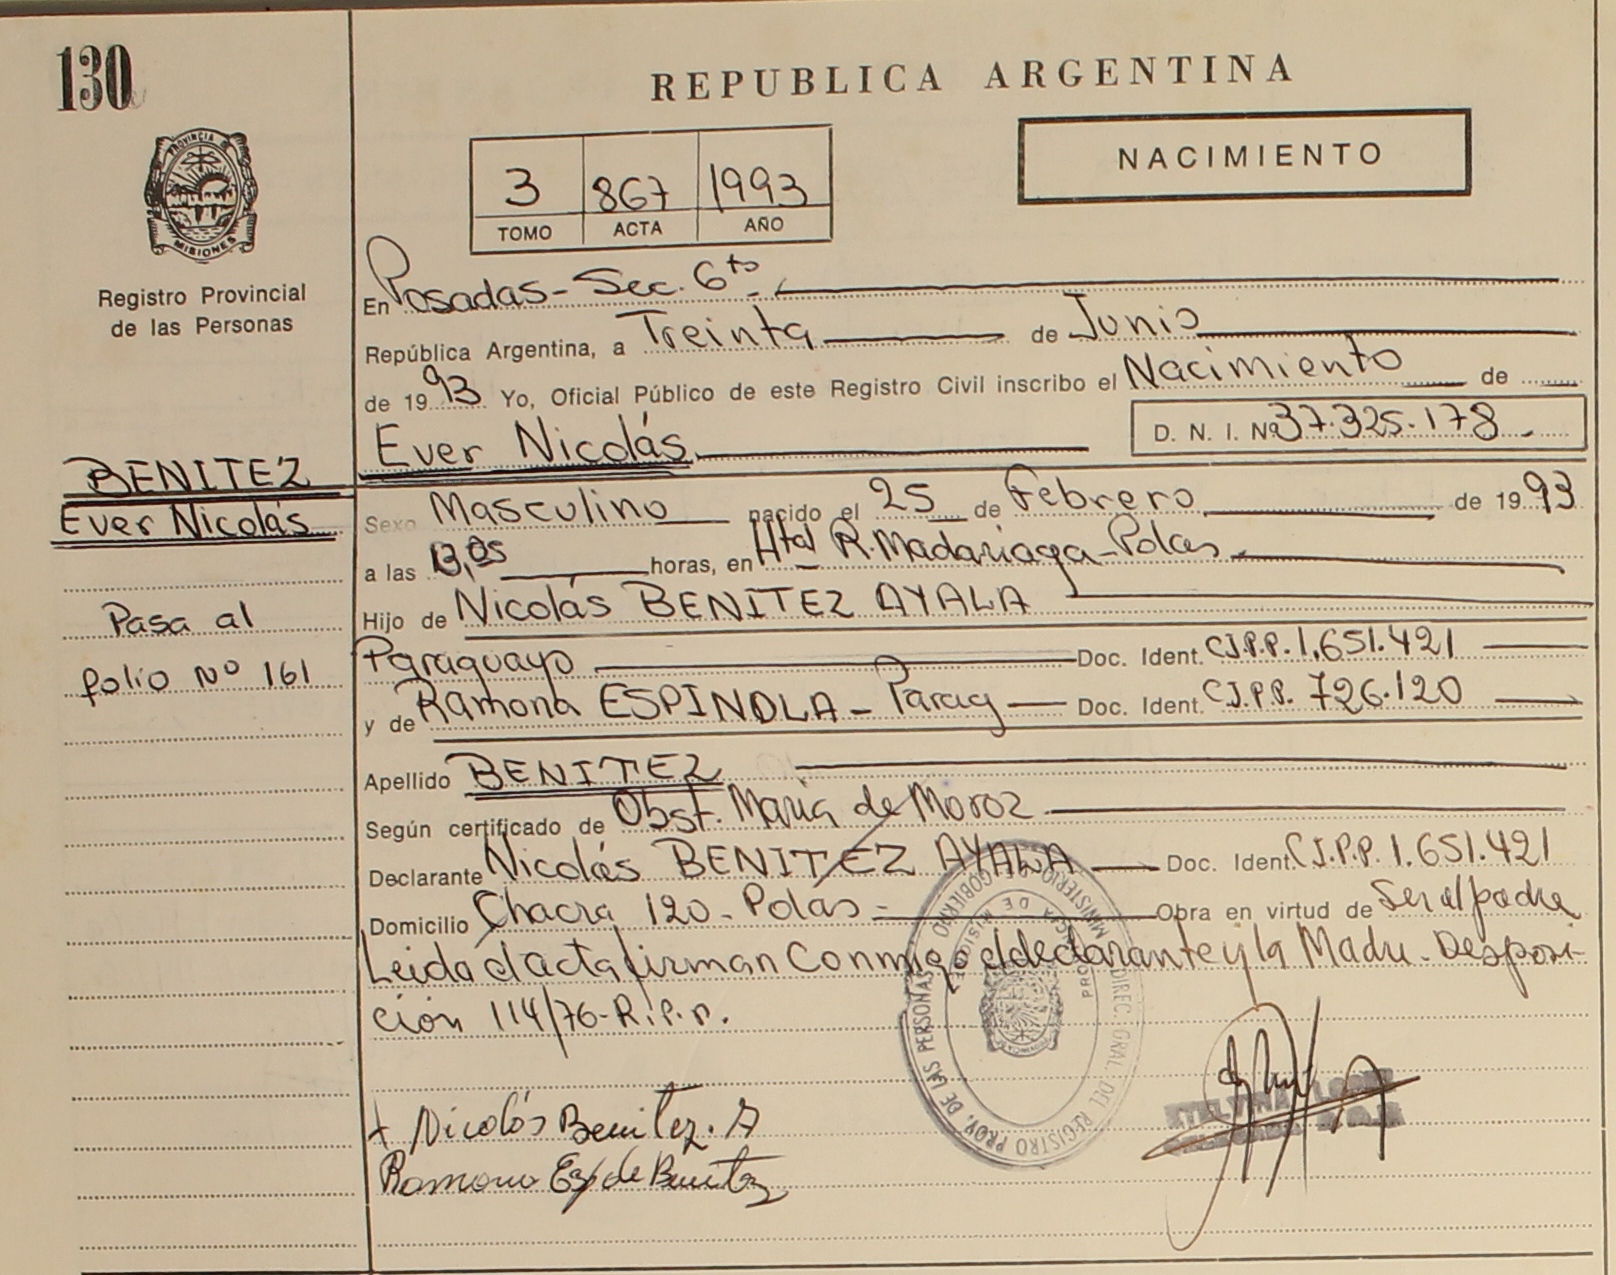 130
REPUBLICA ARGENTINA
PROVINCIA DE
MISIONES
Registro Provincial
de las Personas
NACIMIENTO
3 867 1993
TOMO ACTA AÑO
En Posadas - Sec. 6ta
República Argentina, a Treinta de Junio
de 1993 Yo, Oficial Público de este Registro Civil inscribo el Nacimiento de
Ever Nicolás D. N. I. Nº 37.325.178
BENITEZ
Ever Nicolás
Pasa al
folio Nº 161
Sexo Masculino nacido el 25 de Febrero de 1993
a las 13,05 horas, en Htal R. Madariaga - Pdas
Hijo de Nicolás BENITEZ AYALA
Paraguayo Doc. Ident. C.I.P.P. 1.651.421
y de Ramona ESPINDOLA - Parag Doc. Ident. C.I.P.P. 726.120
Apellido BENITEZ
Según certificado de Obst. Maria de Moroz
Declarante Nicolás BENITEZ AYALA Doc. Ident. C.I.P.P. 1.651.421
Domicilio Chacra 120 - Pdas - Obra en virtud de Ser el padre
Leida el acta firman Conmigo el declarante y la Madre - Disposi-
ción 114/76-R.P.P.
+ Nicolás Benitez. A
Ramona Esp de Benitez
MINISTERIO DE GOBIERNO
DIREC. GRAL. DEL REGISTRO PROV. DE LAS PERSONAS